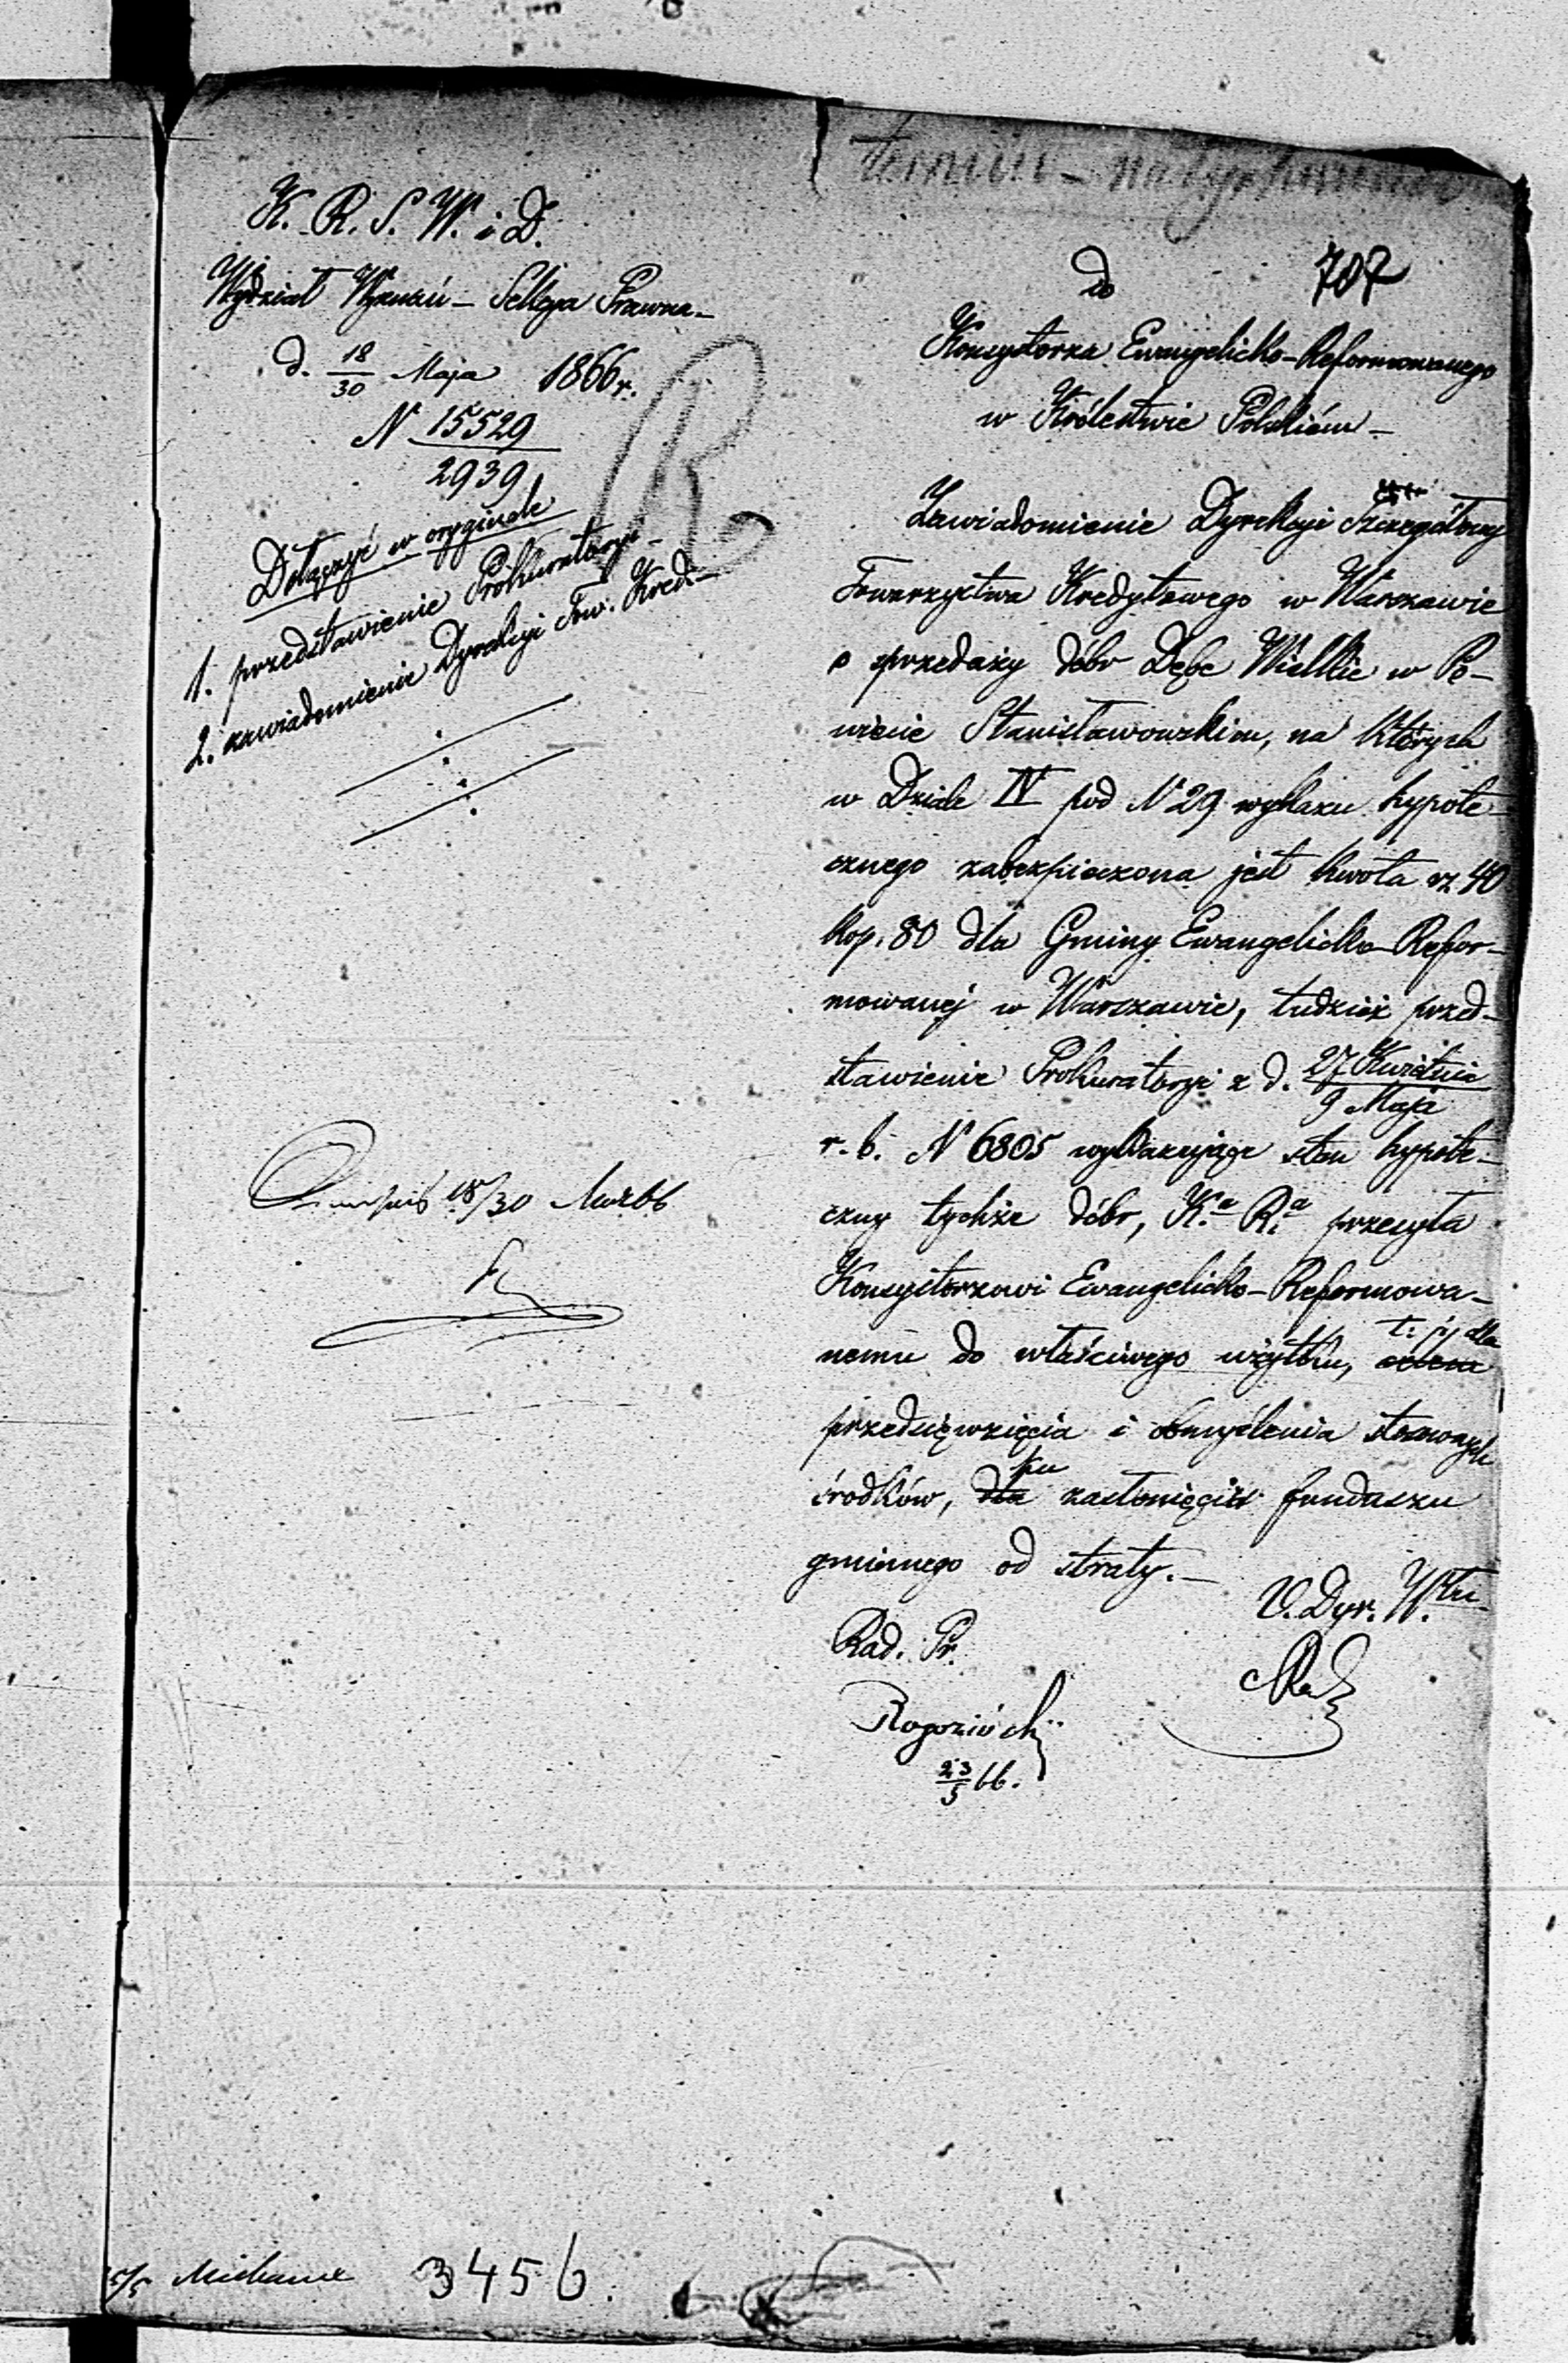 K. R. S. W. i D.
Wydział Wyznań – Sekcya Prawna –
d. 18/30 Maja 1866 r.
N 15529
2939
Dołączyć w oryginale
1. przedstawienie Prokuratoryi –
2. zawiadomienie Dyrekcyi Tow. Kred. –
18/30
3456.
termin – natychmiastowy
do
707
Konsystorza Ewangelicko-Reformowanego
w Królestwie Polskiém –
Zawiadomienie Dyrekcyi Szczegółowej
Towarzystwa Kredytowego w Warszawie
o sprzedaży dóbr Dębe Wielkie w Po-
wiecie Stanisławowskim, na których
w Dziale IV pod N 29 wykazu hypote-
cznego zabezpieczona jest kwota rs. 40
kop. 80 dla Gminy Ewangelicko-Refor-
mowanej w Warszawie, tudzież przed-
stawienie Prokuratoryi z d. 27 Kwietnia
9 Maja
r. b. N 6805 wykazujące stan hypote-
czny tychże dóbr, K.a R.a przesyła
Konsystorzowi Ewangelicko-Reformowa-
t. j. dla
nemu do właściwego użytku, celem
przedsięwzięcia i obmyślenia stosownych
ku
środków, dla zasłonięcia funduszu
gminnego od straty. –
V. Dyr. W.łu
Rad. Pr.
Rogoziński
23/5 66.